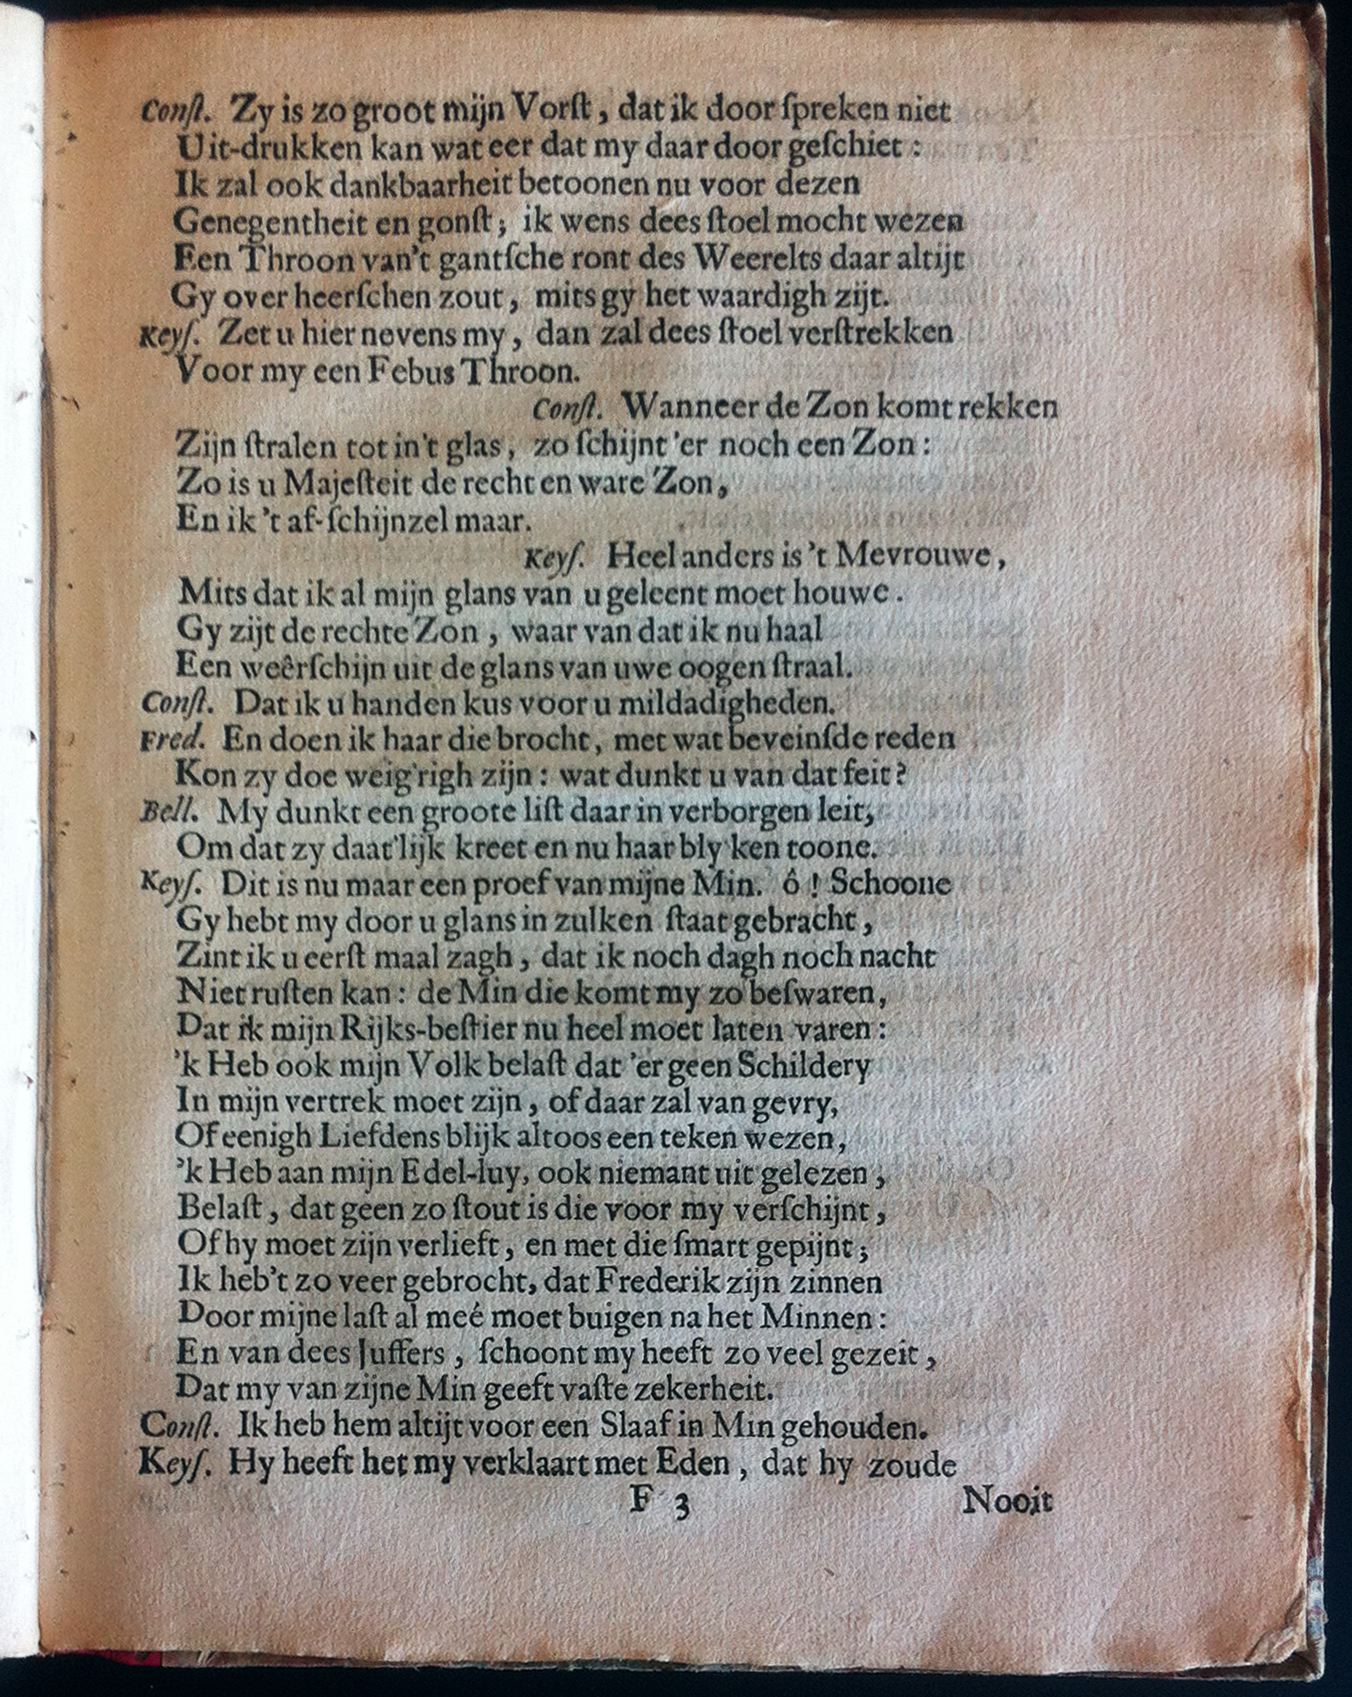 Conſt. Zy is zo groot mijn Vorſt, dat ik door ſpreken niet
Uit-drukken kan wat eer dat my daar door geſchiet:
Ik zal ook dankbaarheit betoonen nu voor dezen
Genegentheit en gonſt; ik wens dees ſtoel mocht wezen
Een Throon van't gantſche ront des Weerelts daar altijt
Gy over heerſchen zout, mits gy het waardigh zijt.
Keyſ. Zet u hier nevens my, dan zal dees ſtoel verſtrekken
Voor my een Febus Throon.
Conſt. Wanneer de Zon komt rekken
Zijn ſtralen tot in't glas, zo ſchijnt 'er noch een Zon:
Zo is u Majeſteit de recht en ware Zon,
En ik 't af-ſchijnzel maar.
Keyſ. Heel anders is 't Mevrouwe,
Mits dat ik al mijn glans van u geleent moet houwe.
Gy zijt de rechte Zon, waar van dat ik nu haal
Een weêrſchijn uit de glans van uwe oogen ſtraal.
Conſt. Dat ik u handen kus voor u mildadigheden.
Fred. En doen ik haar die brocht, met wat beveinſde reden
Kon zy doe weig'righ zijn: wat dunkt u van dat feit?
Bell. My dunkt een groote liſt daar in verborgen leit,
Om dat zy daat'lijk kreet en nu haar bly ken toone.
Keyſ. Dit is nu maar een proef van mijne Min. ô! Schoone
Gy hebt my door u glans in zulken ſtaat gebracht,
Zint ik u eerſt maal zagh, dat ik noch dagh noch nacht
Niet ruſten kan: de Min die komt my zo beſwaren,
Dat ik mijn Rijks-beſtier nu heel moet laten varen:
'k Heb ook mijn Volk belaſt dat 'er geen Schildery
In mijn vertrek moet zijn, of daar zal van gevry,
Of eenigh Liefdens blijk altoos een teken wezen,
'k Heb aan mijn Edel-luy, ook niemant uit gelezen,
Belaſt, dat geen zo ſtout is die voor my verſchijnt,
Of hy moet zijn verlieft, en met die ſmart gepijnt;
Ik heb't zo veer gebrocht, dat Frederik zijn zinnen
Door mijne laſt al meé moet buigen na het Minnen:
En van dees Juffers, ſchoont my heeft zo veel gezeit,
Dat my van zijne Min geeft vaſte zekerheit.
Conſt. Ik heb hem altijt voor een Slaaf in Min gehouden.
Keyſ. Hy heeft het my verklaart met Eden, dat hy zoude
F 3 Nooit